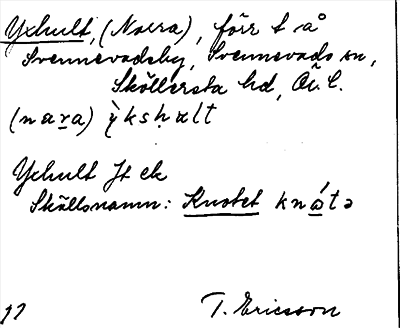 Yxhult, (Norra), förr t å
Svennevadsby, Svennevads sn,
Sköllersta hd, Ör. l.
(nara) ỳkshult
Yxhult Jt ek
Skällsnamn: Knotet knátə
17
T. Ericsson